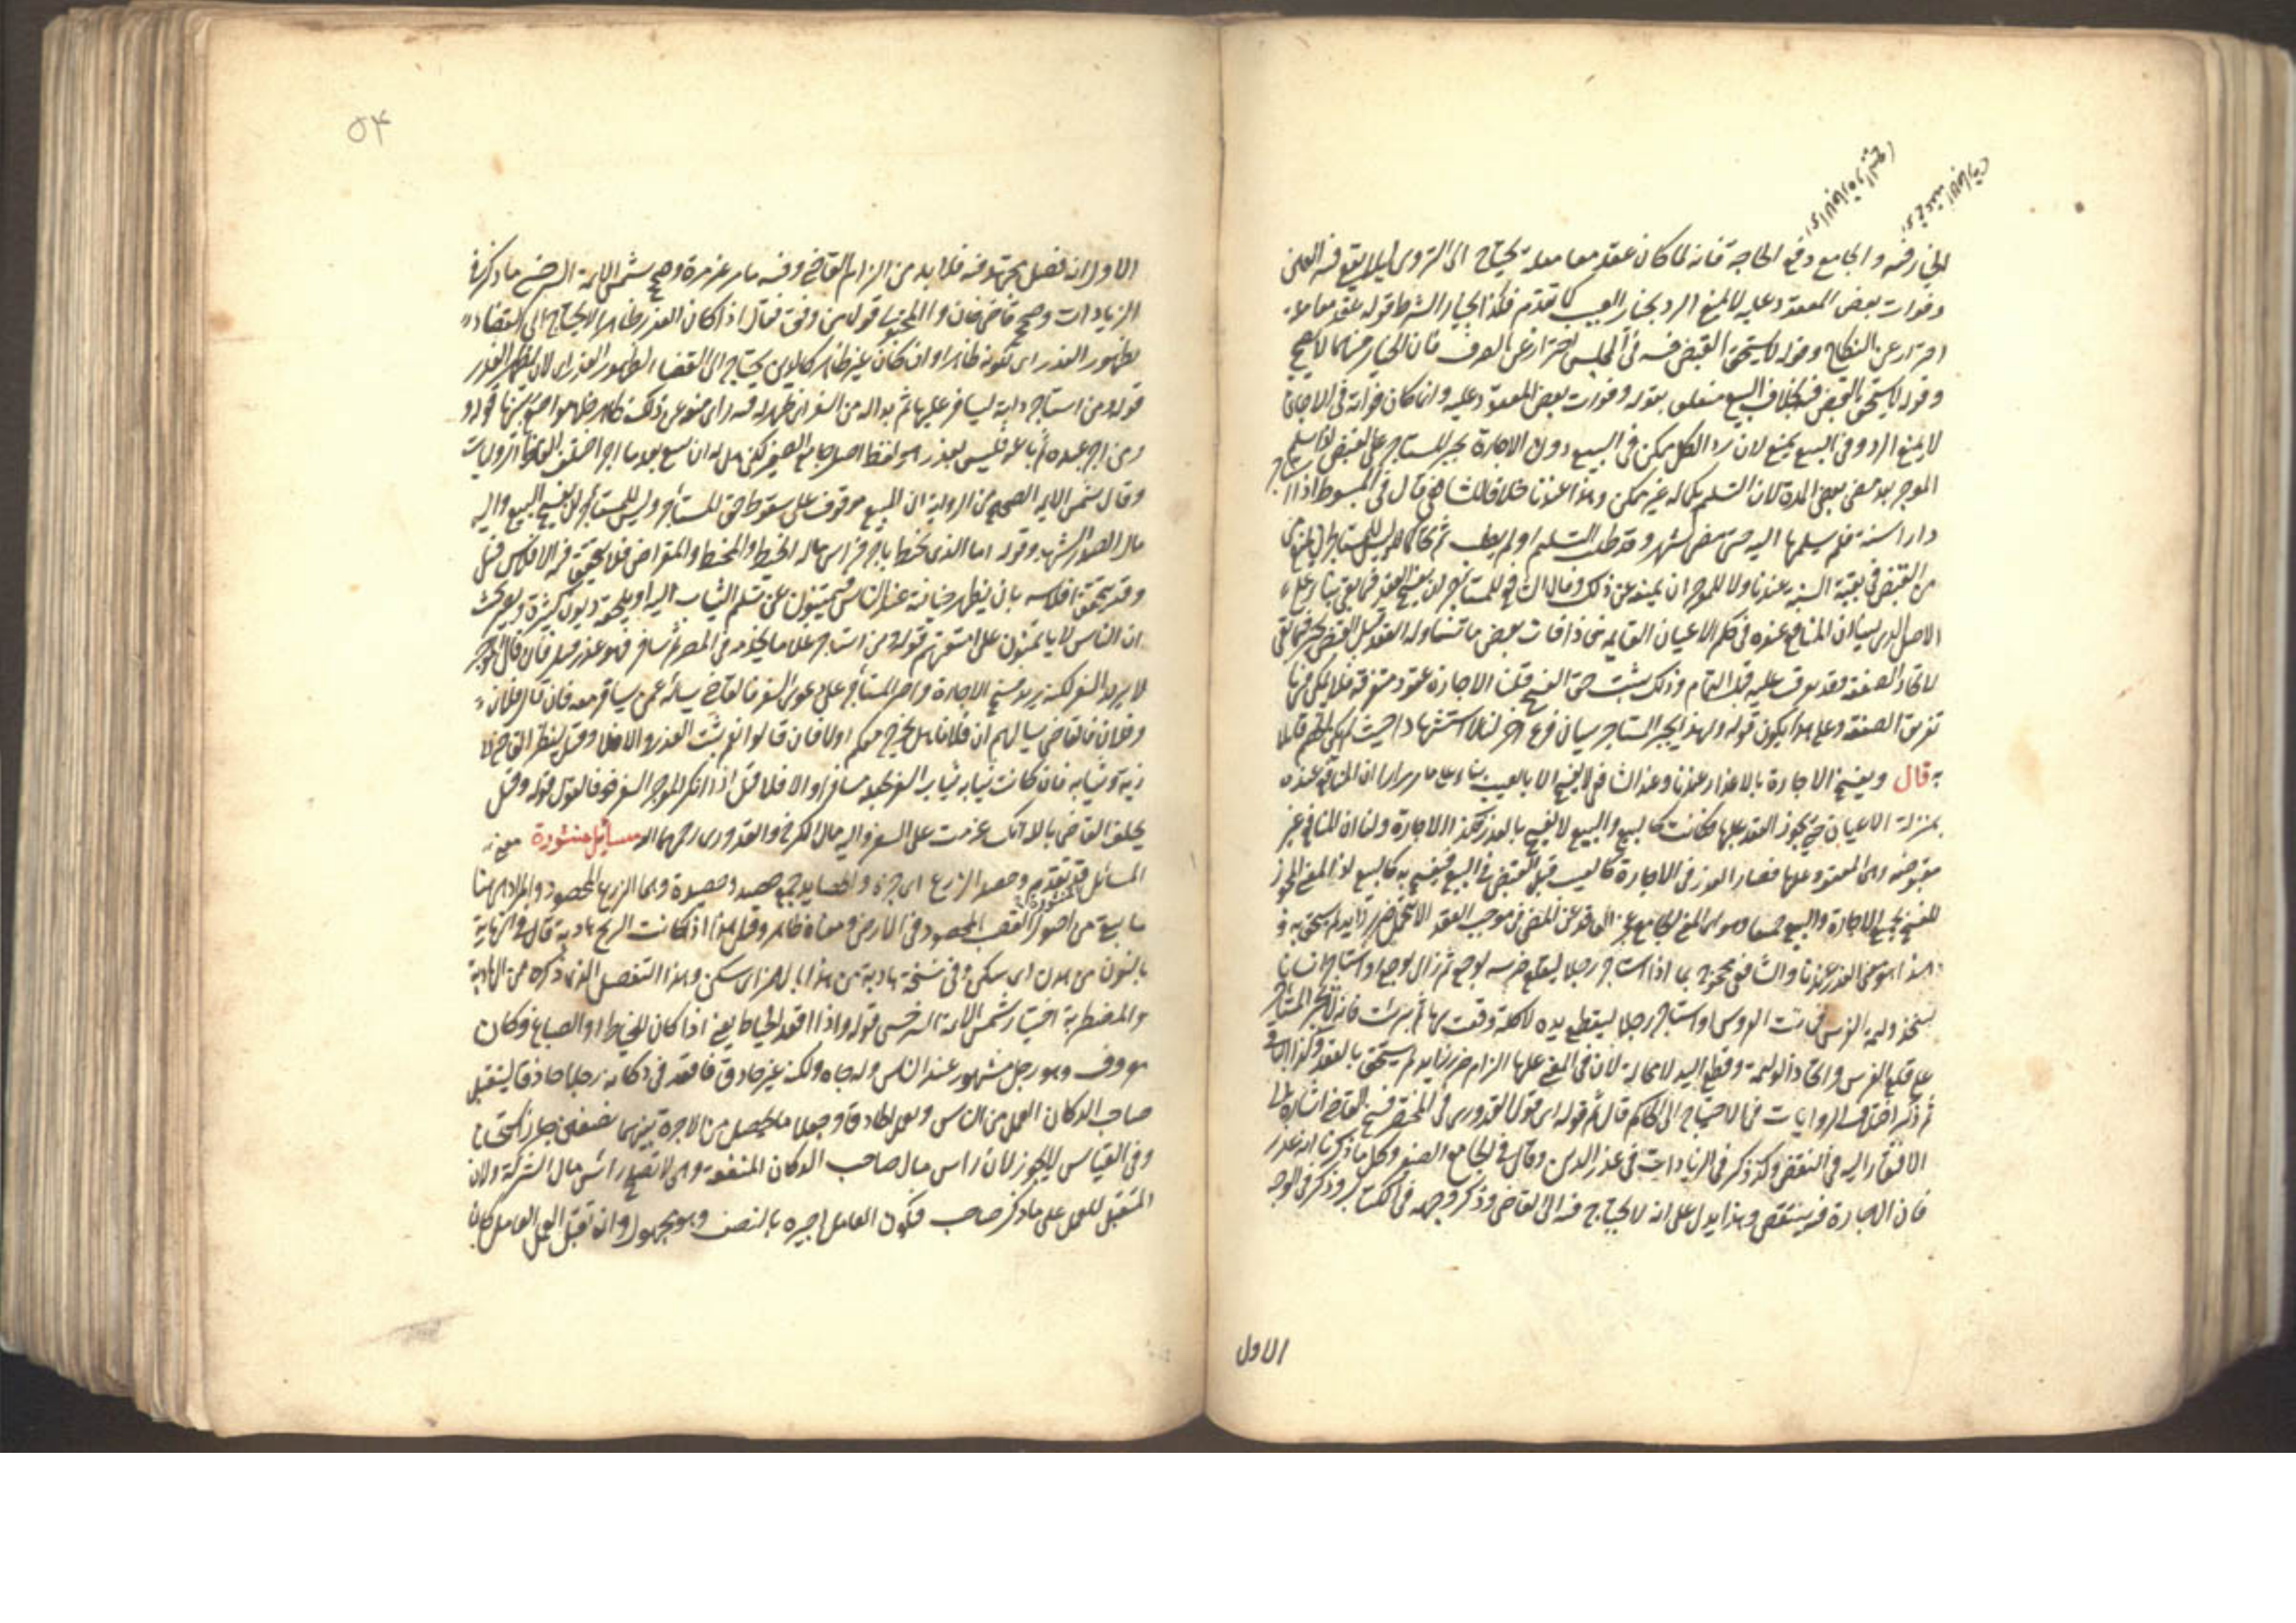 الخيار فيه والجامع دفع الحاجة فانه لما كان عقد معاملة يحتاج الى التروى ليلا يقع فيه الغبن
وفوات بعض المعقود عليه لا يمنع الرد بخيار العيب كما تقدم فكذا بخيار الشرط قوله عقد معاملة
احتراز عن النكاح وقوله لا يستحق القبض فيه فى المجلس احتراز عن الصرف فان الخيار فيهما لا يصح
وقوله لا يستحق القبض فيه بخلاف البيع متعلق بقوله وفوات بعض المعقود عليه وانما كان فواته فى الاجارة
لا يمنع الرد وفى البيع يمنع لان رد الكل يمكن فى البيع دون الاجارة يجبر المستاجر على القبض اذا سلم
الموجر بعد مضى بعض المدة لان التسليم بكماله غير ممكن وهذا عندنا خلافا للشافعى قال فى المبسوط اذا استاجر
دارا سنة فلم يسلمها اليه حتى مضى شهر وقد طلب التسليم او لم يطلب ثم تحاكما لم يكن للمستاجر ان يمتنع
من القبض فى بقية السنة عندنا ولا للموجر ان يمنعه عن ذلك وقال الشافعى للمستاجر ان يفسخ العقد فيما بقى بناء على
الاصل الذى بينا ان المنافع عنده فى حكم الاعيان القايمة فاذا فات بعض ما تناوله العقد قبل القبض خير فيما بقى
لاتحاد الصفقة فقد تفرقت عليه قبل التمام وذلك يثبت حق الفسخ قلنا الاجارة عقود متفرقة فلا يمكن فيها
تفريق الصفقة وعلى هذا يكون قوله ولهذا يجبر المستاجر بيان فرع اخر لنا لا استشهادا حيث لم يكن الخصم قايلا
به قال ويفسخ الاجارة بالاعذار عندنا وعند الشافعى لا يفسخ الا بالعيب بناء على ما مر مرارا ان المنافع عنده
بمنزلة الاعيان حتى يجوز العقد عليها فكانت كالبيع والبيع لا يفسخ بالعذر فكذا الاجارة ولنا ان المنافع غير
مقبوضة وهى المعقود عليها فصار العذر فى الاجارة كالعيب قبل القبض فى البيع فيفسخ به كالبيع لان المعنى المجوز
للفسخ يجمع الاجارة والبيع جميعا وهو اى المعنى الجامع عجز العاقد عن المضى فى موجب العقد الا بتحمل ضرر زايد لم يستحق به و
هذا هو معنى العذر عندنا والشافعى محجوج بما اذا استاجر رجلا ليقلع ضرسه لوجع ثم زال الوجع او استاجر انسانا
ليتخذ وليمة العرس فماتت العروس او استاجر رجلا ليقطع يده لاكلة وقعت بها ثم برئت فانه لا يجبر المستاجر
على قلع الضرس واتخاذ الوليمة وقطع اليد لا محالة لان فى المضى عليها الزام ضرر زايد لم يستحق بالعقد وكذا الباقى
ثم ذكر اختلاف الروايات فى الاحتياج الى الحاكم قال ثم قوله اى قول القدورى فى المختصر فسخ القاضى اشارة الى
الافتقار اليه فى النقض وكذا ذكر فى الزيادات فى عذر الدين وقال فى الجامع الصغير وكل ما ذكرنا انه عذر
فان الاجارة فيه ينتقض وهذا يدل على انه لا يحتاج فيه الى القاضى وذكر وجهه فى الكتاب وذكر فى الوجه
الاول
٥٤
الاول انه فصل مجتهد فيه فلا بد من الزام القاضى وفيه ما مر غير مرة وصحح شمس الايمة السرخسى ما ذكر فى
الزيادات وصحح قاضى خان والمحبوبى قول من وفق فقال اذا كان العذر ظاهرا لا يحتاج الى القضاء
لظهور العذر اى لكونه ظاهرا وان كان غير ظاهر كالدين يحتاج الى القضاء لظهور العذر اى لان يظهر العذر
قوله ومن استاجر دابة ليسافر عليها ثم بدا له من السفر اى ظهر له فيه راى منعه عن ذلك ظاهر قوله و
ومن اجر عبده ثم باعه فليس بعذر هو لفظ اصل الجامع الصغير لكن هل له ان يبيع بعد ما اجر اختلف الفاظ الروايات
وقال شمس الايمة الصحيح من الرواية ان البيع موقوف على سقوط حق المستاجر وليس للمستاجر ان يفسخ البيع واليه
مال الصدر الشهيد وقوله اما الذى يخيط باجر فراس ماله الخيط والمخيط والمقراض فلا يتحقق فيه الافلاس قيل
وقد يتحقق افلاسه بان يظهر خيانته عند الناس فيمتنعون عن تسليم الثياب اليه او يلحقه ديون كثيرة ويصير بحيث
ان الناس لا ياتمنونه على امتعتهم قوله ومن استاجر غلاما يخدمه فى المصر ثم سافر فهو عذر قيل فان قال الموجر
لا يريد السفر لكنه يريد فسخ الاجارة واصر المستاجر على دعوى السفر فالقاضى يسأله عمن يسافر معه فان قال فلان
وفلان فالقاضى يسالهم ان فلانا هل يخرج معكم او لا فان قالوا نعم ثبت العذر والا فلا وقيل ينظر القاضى الى
زيه وثيابه فان كانت ثيابه ثياب السفر يجعله مسافرا والا فلا قيل اذا انكر الموجر السفر فالقول قوله وقيل
يحلف القاضى بالله انك عزمت على السفر واليه مال الكرخى والقدورى رحمهما الله مسائل منثورة معنى
المسائل المنثورة قد تقدم وحصد الزرع اى جزه والحصايد جمع حصيد وحصيدة وهما الزرع المحصود والمراد هى هنا
ما يبقى من اصول القصب المحصود فى الارض ومعناه ظاهر وقيل هذا اذا كانت الريح هادنة قال فى النهاية
بالنون من هدن اى سكن وفى نسخة هادية من هدا بالهمز اى سكن وهذا التفصيل الذى ذكره من الهادنة
والمضطربة اختيار شمس الايمة السرخسى قوله واذا اقعد الخياط يعنى اذا كان للخياط او الصباغ دكان
معروف وهو رجل مشهور عند الناس وله جاه ولكنه غير حاذق فاقعد فى دكانه رجلا حاذقا ليتقبل
صاحب الدكان العمل من الناس ويعمل الحاذق وجعلا ما يحصل من الاجرة بينهما نصفين جاز استحسانا
وفى القياس لا يجوز لان راس مال صاحب الدكان المنفعة وهى لا تصلح راس مال الشركة ولان
المتقبل للعمل على ما ذكر صاحب فيكون العامل اجيره بالنصف وهو مجهول وان تقبل العمل العامل كان